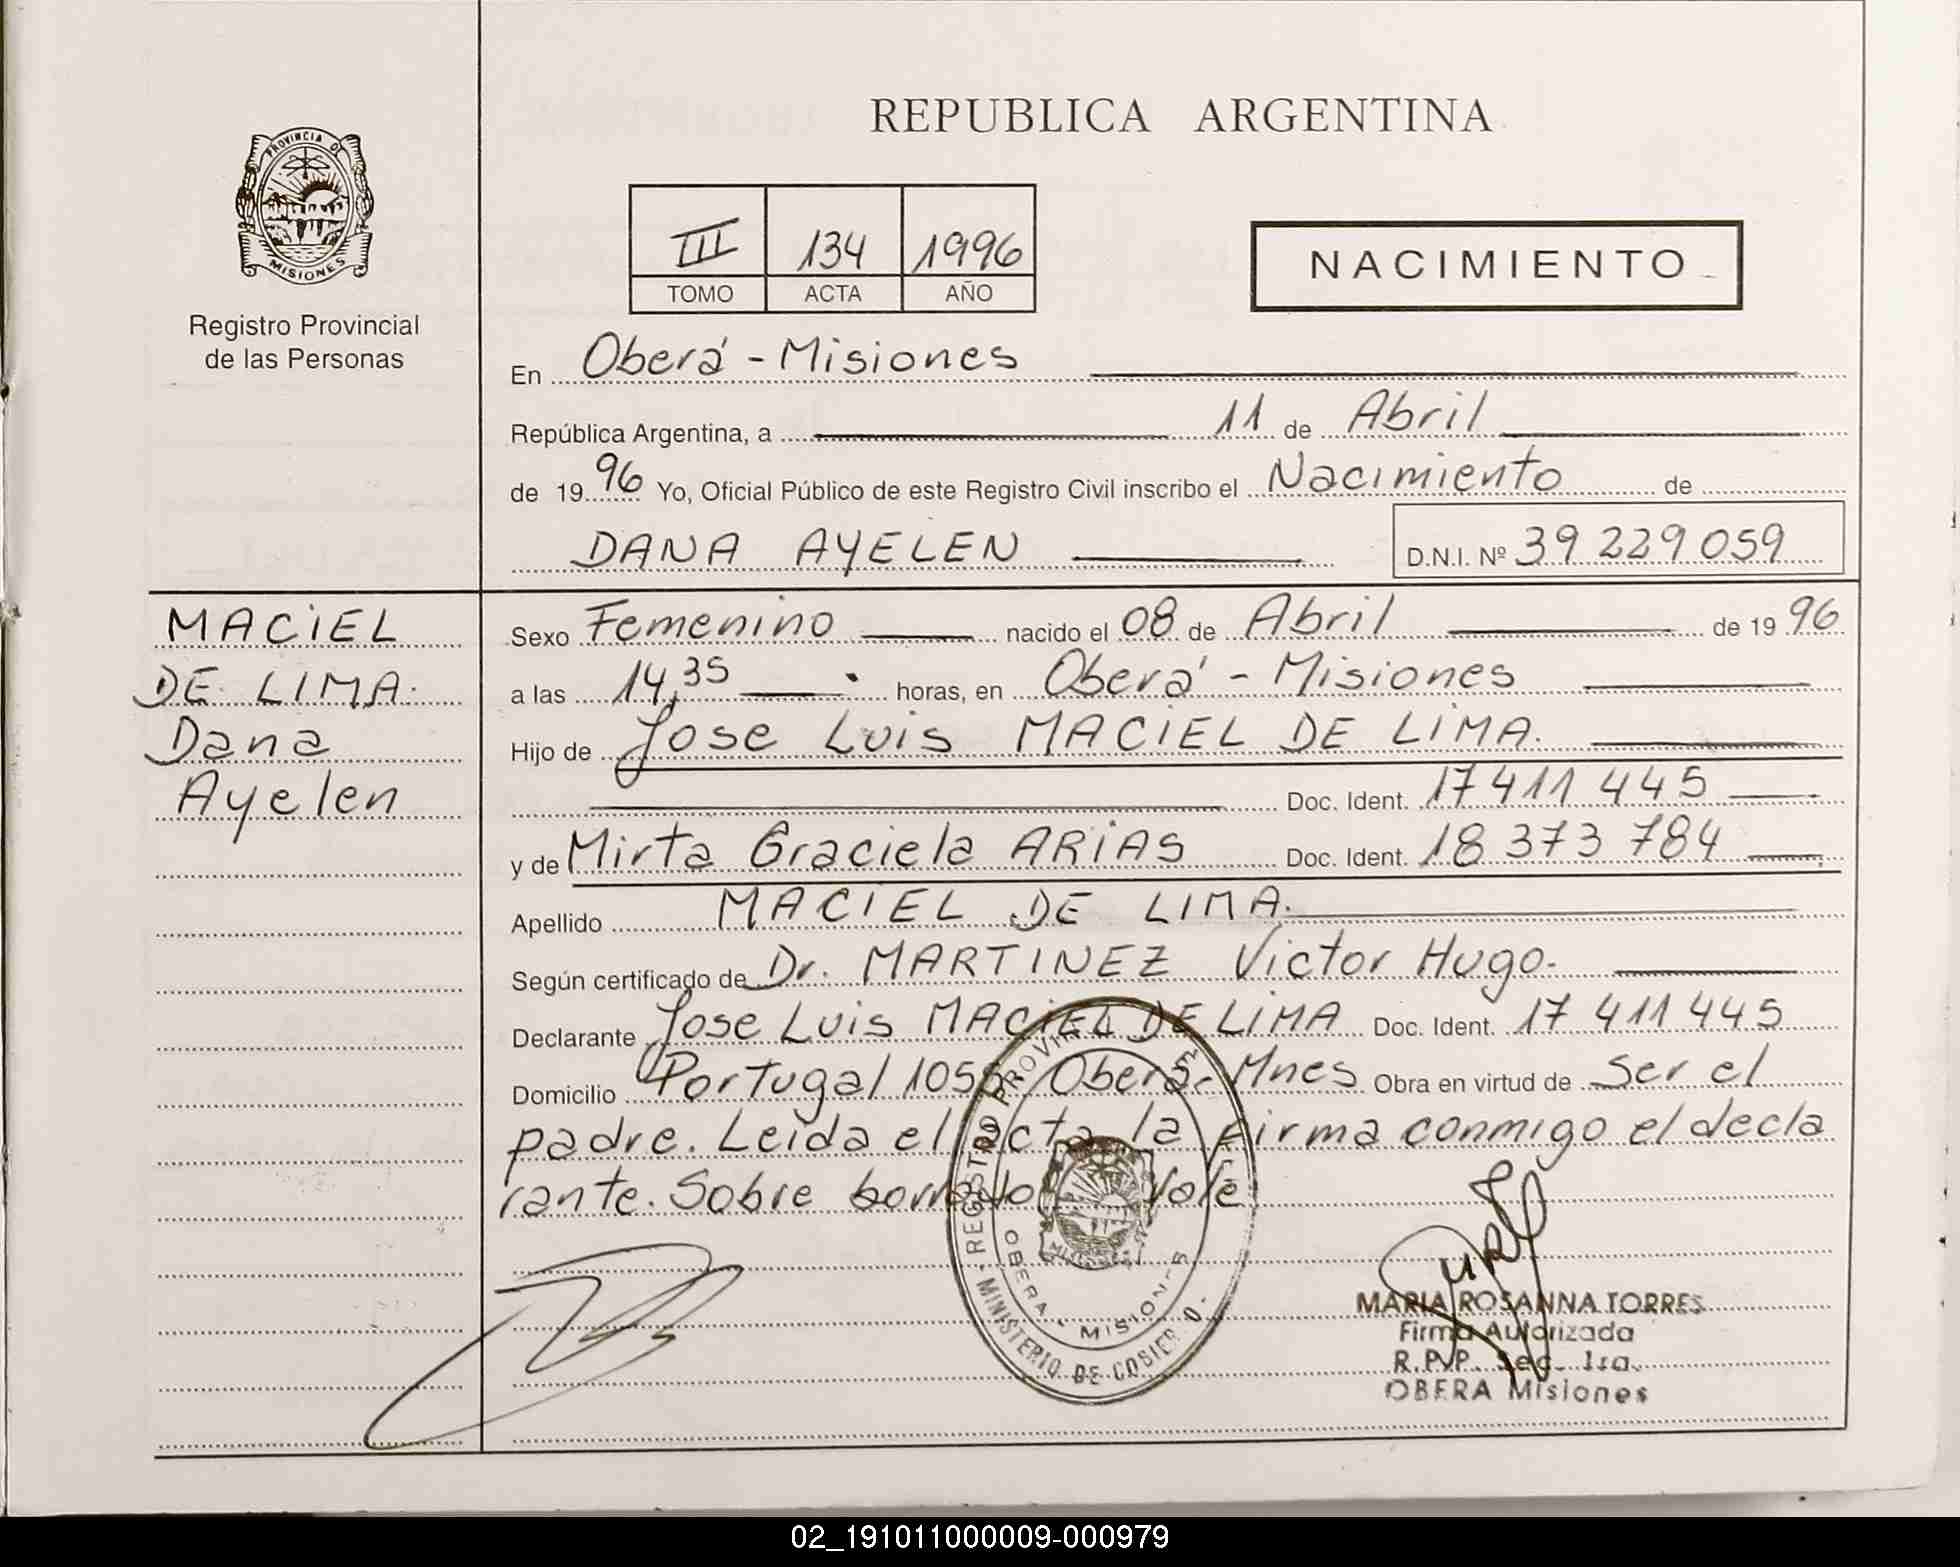 REPUBLICA ARGENTINA
PROVINCIA DE
MISIONES
Registro Provincial
de las Personas
III 134 1996
TOMO ACTA AÑO
NACIMIENTO
En Oberá - Misiones
República Argentina, a 11 de Abril
de 19 96 Yo, Oficial Público de este Registro Civil inscribo el Nacimiento de
DANA AYELEN D.N.I. Nº 39 229 059
MACIEL
DE LIMA.
Dana
Ayelen
Sexo Femenino nacido el 08 de Abril de 19 96
a las 14,35 horas, en Oberá - Misiones
Hijo de Jose Luis MACIEL DE LIMA.
Doc. Ident. 17 411 445
y de Mirta Graciela ARIAS Doc. Ident. 18 373 784
Apellido MACIEL DE LIMA.
Según certificado de Dr. MARTINEZ Victor Hugo.
Declarante Jose Luis MACIEL DE LIMA Doc. Ident. 17 411 445
Domicilio Portugal 1055 Oberá. Mnes Obra en virtud de Ser el
padre. Leida el acta la firma conmigo el decla
rante. Sobre borrado Vale
REGISTRO PROVINCIAL
MINISTERIO DE GOBIERNO
OBERA - MISIONES
MARIA ROSANNA TORRES
Firma Autorizada
R.P.P. Sec. 1ra.
OBERA Misiones
02_191011000009-000979